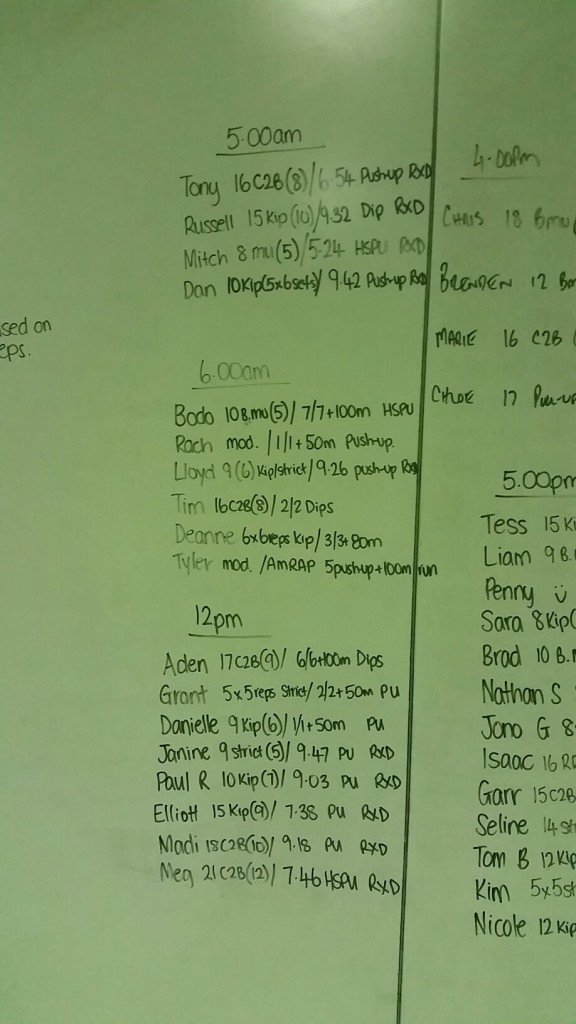 5.00am
Tony 16C2B(8)/6.54 Push-up RXD
Russell 15Kip(10)/9.32 Dip RXD
Mitch 8mu(5)/5.24 HSPU RXD
Dan 10Kip(5x6sets)/ 9.42 Push-up RXD
sed on
eps.
6.00am
Bodo 10B.mu(5)/ 7/7+100m HSPU
Rach mod. /1/1+50m Push-up.
Lloyd 9(6)Kip/strict/9.26 push-up RXD
Tim 16C2B(8)/2/2 Dips
Deanne 6x6reps Kip/3/3+80m
Tyler mod. /AMRAP 5pushup+100m run
12pm
Aden 17C2B(9)/ 6/6+100m Dips
Grant 5x5reps Strict/2/2+50m PU
Danielle 9Kip(6)/1/1+50m PU
Janine 9strict(5)/9.47 PU RXD
Paul R 10Kip(7)/ 9.03 PU RXD
Elliott 15Kip(9)/ 7.38 PU RXD
Madi 18C2B(10)/ 9.18 PU RXD
Meg 21C2B(12)/ 7.46 HSPU RXD
4.00Pm
CHRIS 18 Bmu(
BRENDEN 12 Bm
MARIE 16 C2B (
CHLOE 17 Pull-up
5.00pm
Tess 15Ki
Liam 9B.
Penny ü
Sara 8Kip(
Brad 10 B.m
Nathan S
Jono G 8
Isaac 16
Garr 15C2B
Seline 14st
Tom B 12Kip
Kim 5x5st
Nicole 12Kip